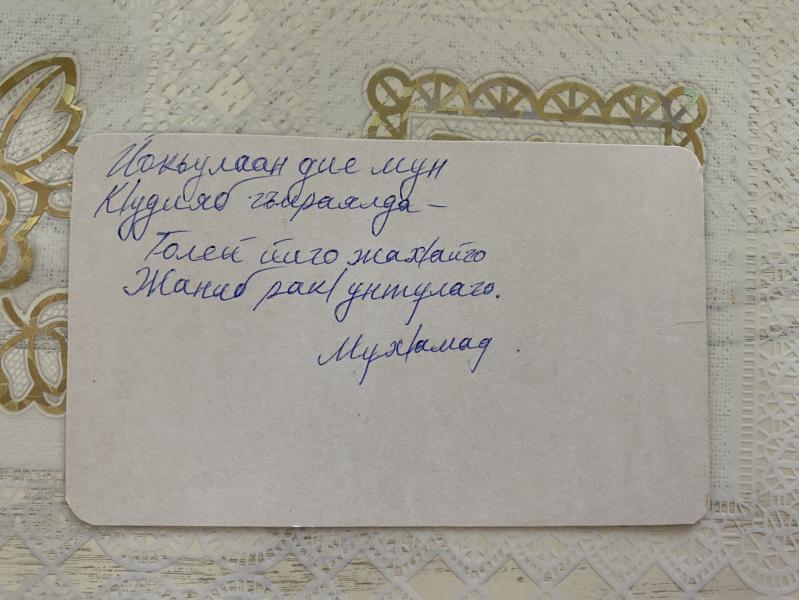 Йокьулаан дие мун
КӀудияб гъираялда –
Толеб йиго жахӀалго
Жаниб ракӀ унтулаго.
МухӀамад